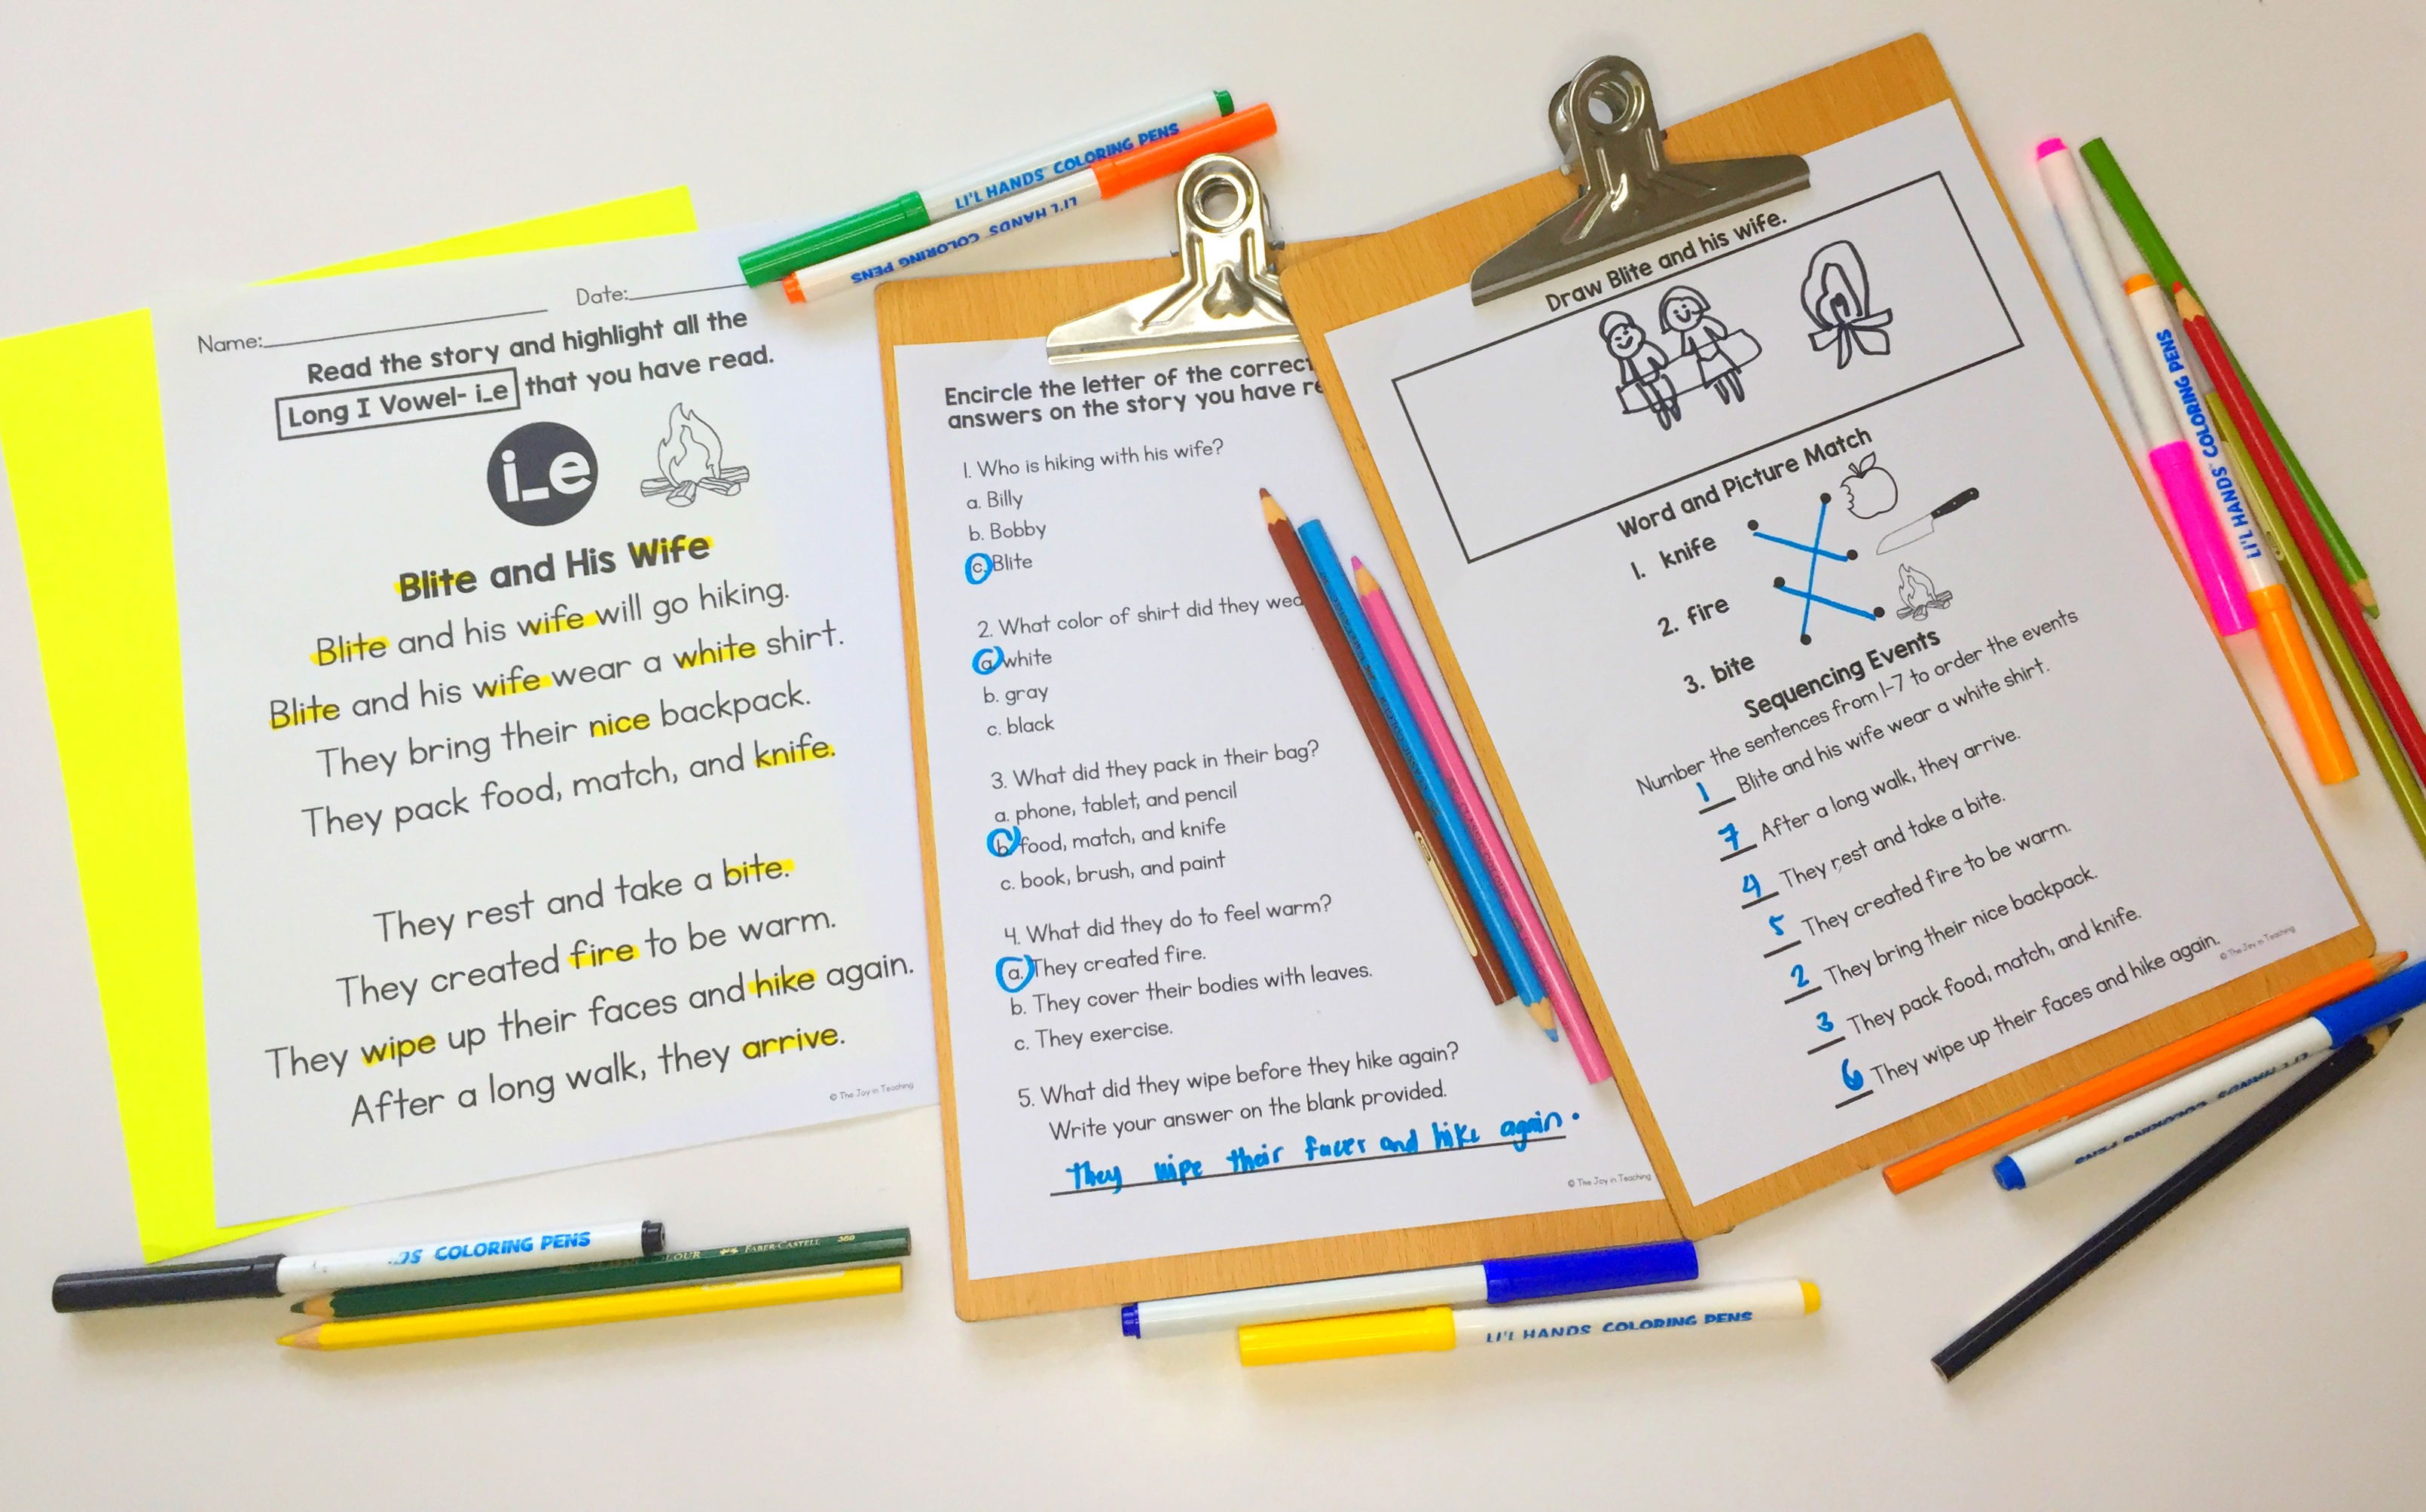 Name:
Date:
Read the story and highlight all the
Long I Vowel- i_e that you have read.
i_e
Blite and His Wife
Blite and his wife will go hiking.
Blite and his wife wear a white shirt.
They bring their nice backpack.
They pack food, match, and knife.
They rest and take a bite.
They created fire to be warm.
They wipe up their faces and hike again.
After a long walk, they arrive.
© The Joy in Teaching
Encircle the letter of the correct
answers on the story you have re
1. Who is hiking with his wife?
a. Billy
b. Bobby
c. Blite
2. What color of shirt did they wea
a. white
b. gray
c. black
3. What did they pack in their bag?
a. phone, tablet, and pencil
b. food, match, and knife
c. book, brush, and paint
4. What did they do to feel warm?
a. They created fire.
b. They cover their bodies with leaves.
c. They exercise.
5. What did they wipe before they hike again?
Write your answer on the blank provided.
They wipe their faces and hike again.
© The Joy in Teaching
Draw Blite and his wife.
Word and Picture Match
1. knife
2. fire
3. bite
Sequencing Events
Number the sentences from 1-7 to order the events
1 Blite and his wife wear a white shirt.
7 After a long walk, they arrive.
4 They rest and take a bite.
5 They created fire to be warm.
2 They bring their nice backpack.
3 They pack food, match, and knife.
6 They wipe up their faces and hike again.
© The Joy in Teaching
LI'L HANDS COLORING PENS
LI'L HANDS COLORING PENS
LI'L HANDS COLORING PENS
DS COLORING PENS
OUR FABER-CASTELL 360
LI'L HANDS COLORING PENS
LI'L HANDS COLORING PENS